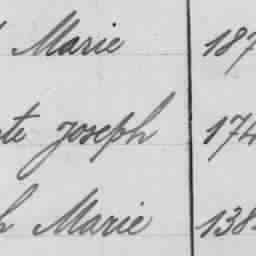 Marie 187
te Joseph 174
h Marie 138